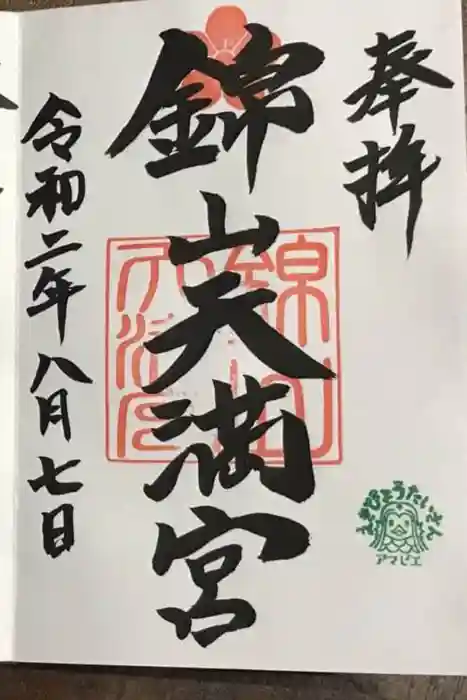 奉拝
錦山天満宮
令和二年八月七日
えきびょうたいさん
アマビエ